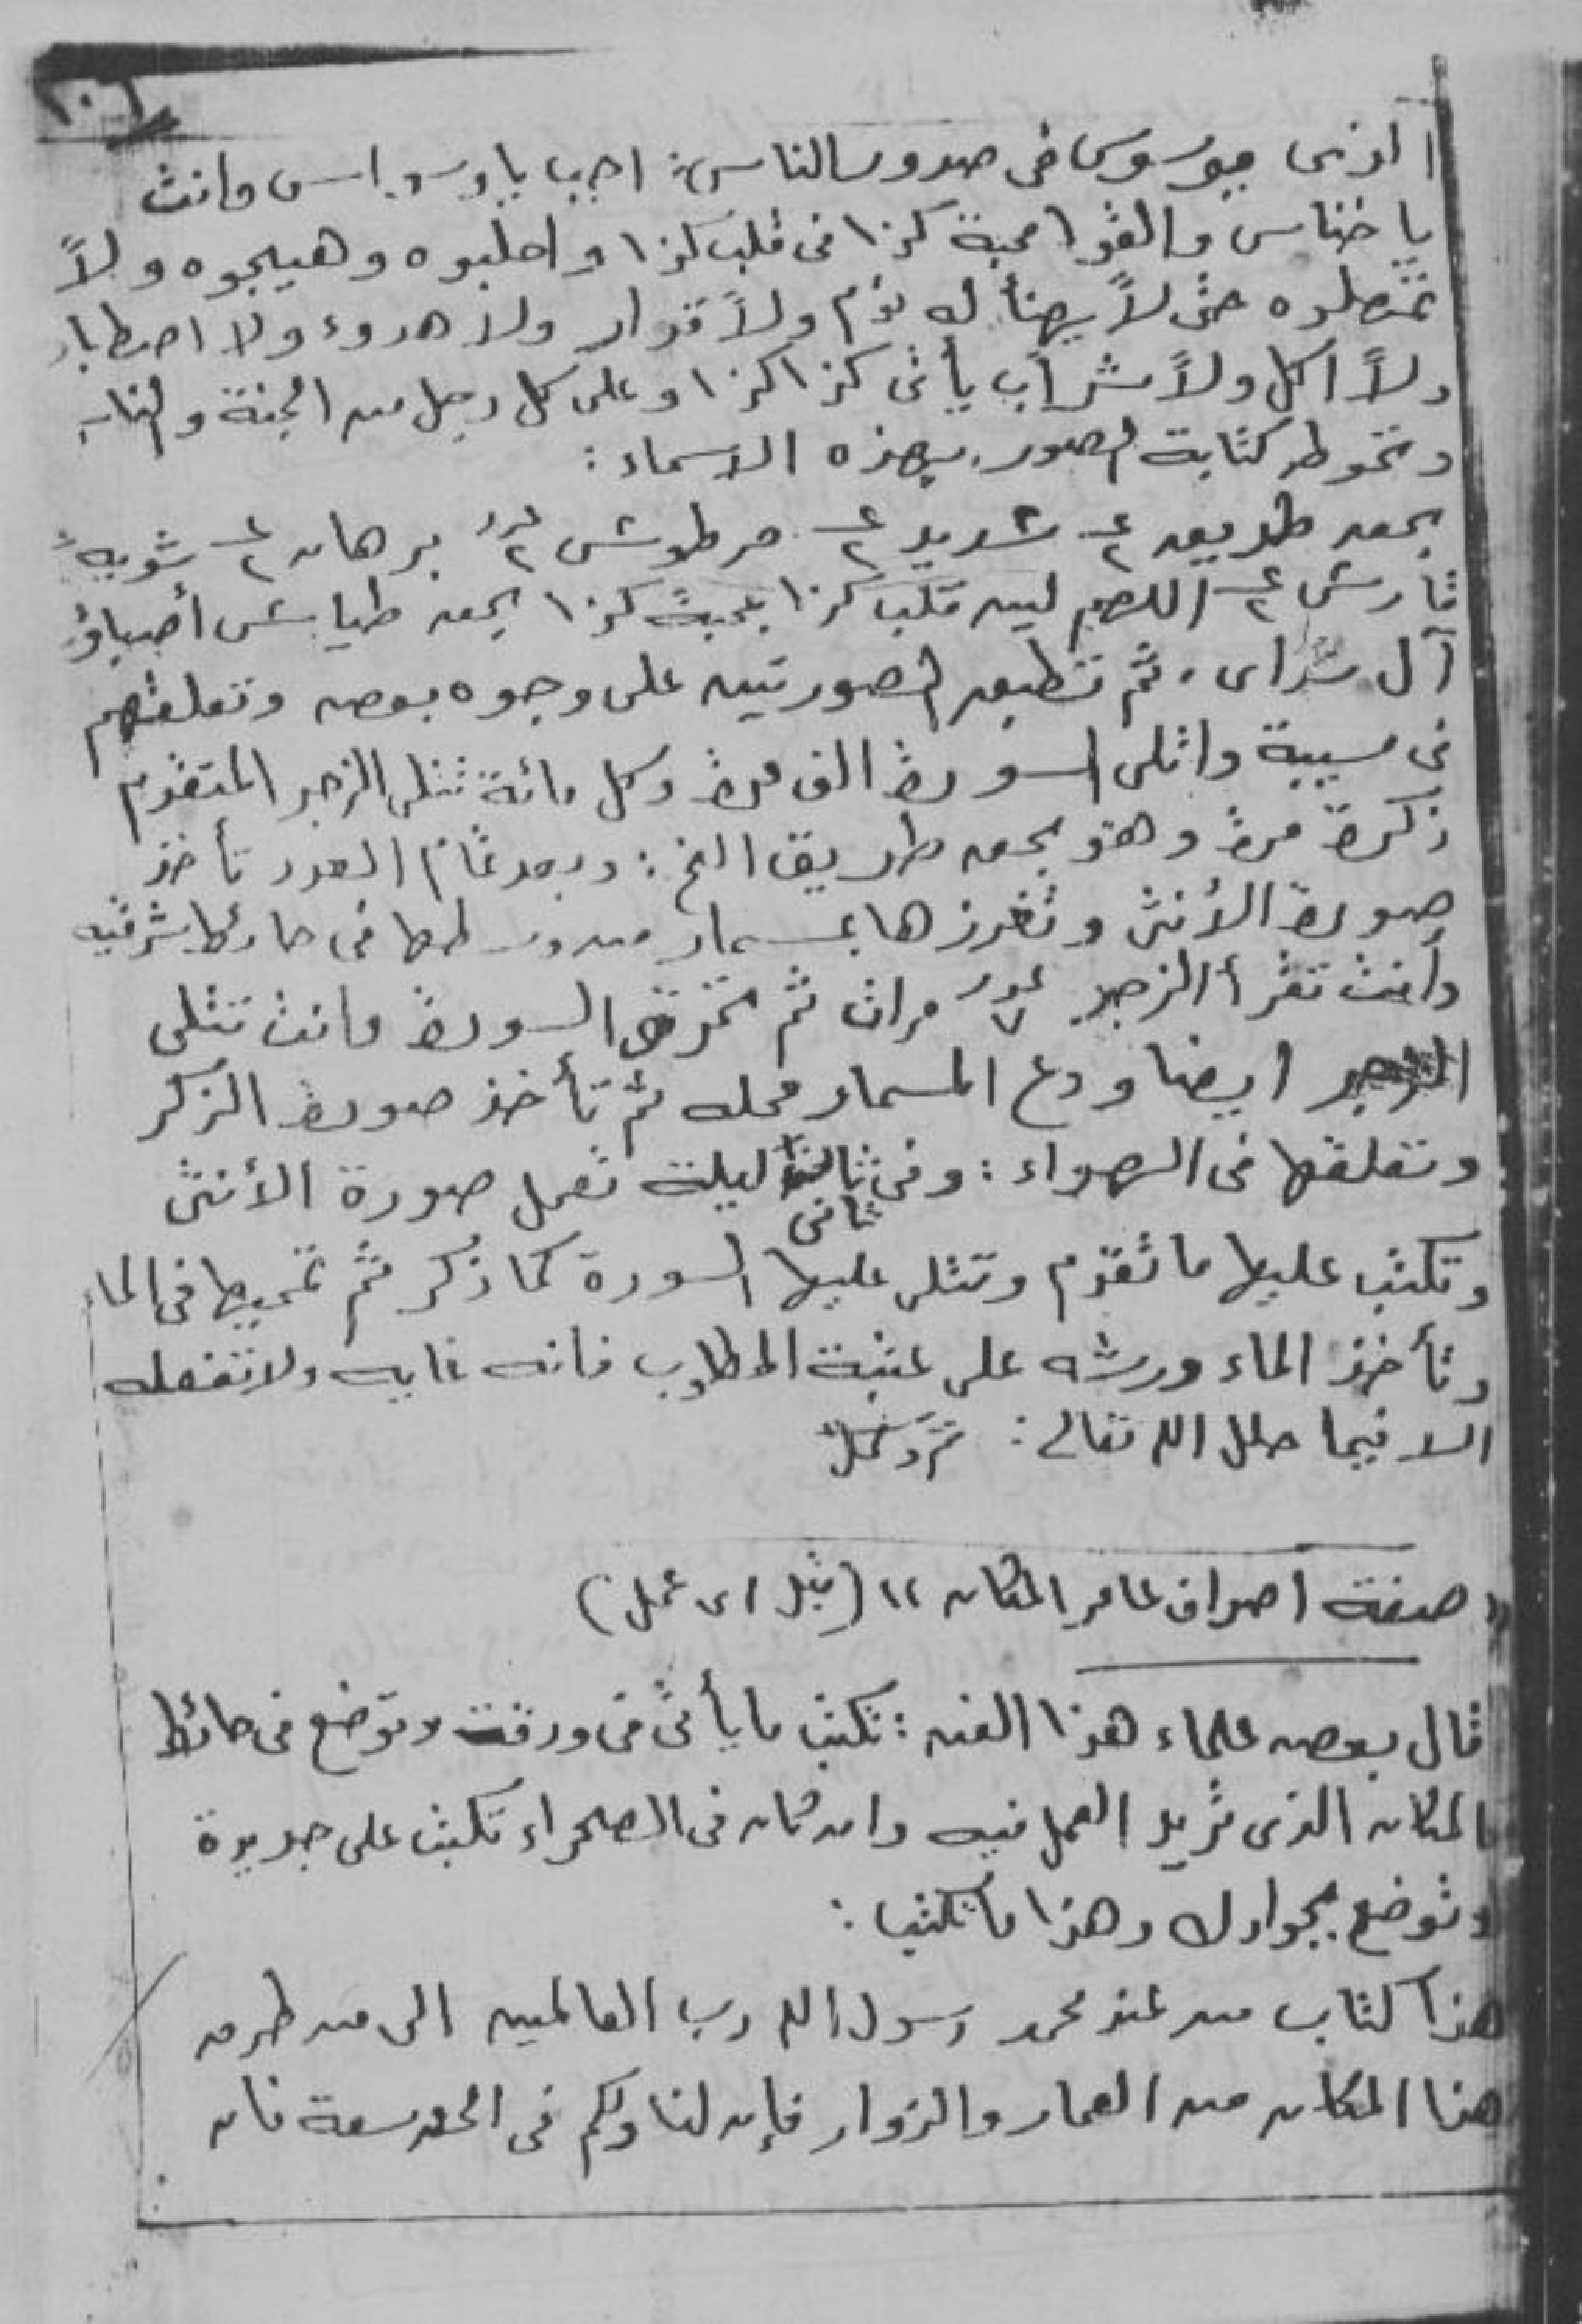 ١٠٦
الذى يوسوس فى صدور الناس: اجب ياوسواس وانت
ياخناس والقوا محبة كذا فى قلب كذا واجلبوه وهيجوه ولا
تمهلوه حتى لا يهنأ له نوم ولا قرار ولا هدوء ولا اصطبار
ولا اكل ولا شراب يأتى كذا كذا وعلى كل رجل من الجنة والناس
وتحوط كتابة الصور بهذه الاسماء:
بحق طريق ٢ع شديد ٢ع مرطوش عدد ٢ برهان ٢ع شويه
قارش ٢ع اللهم لين قلب كذا بمحبة كذا بحق طياش أصباؤ
آل شداى. ثم تطبق الصورتين على وجوه بعض وتعلقهم
فى سيبة واتلى السورة الف مرة وكل مائة تتلى الزجر المتقدم
ذكره مرة وهو بحق طريق الخ: وبعد تمام العدد تأخذ
صورة الأنثى وتغرزها بمسمار من وسطها فى حائط شرقيه
وانت تقرأ الزجر عدد ٧ مرات ثم تحرق السورة وانت تتلى
الزجر ايضا ودع المسمار محله ثم تأخذ صورة الذكر
وتعلقها فى الهواء: وفى ثانى ليلة تعمل صورة الأنثى
وتكتب عليها ما تقدم وتتلى عليها السورة كما ذكر ثم تمحيها فى الماء
وتأخذ الماء ورشه على عتبة المطلوب فانه غايه ولا تفعله
الا فيما حلل الله تعالى: تم وكمل
"صفة اصراف عامر المكان" (قبل اى عمل)
قال بعض علماء هذا الفن: تكتب ما يأتى فى ورقة وتوضع فى حائط
المكان الذى تريد العمل فيه وان كان فى الصحراء تكتب على جريدة
وتوضع بجوارك وهذا ما تكتب:
هذا كتاب من عند محمد رسول الله رب العالمين الى من طرق
هذا المكان من العمار والزوار فإن لنا ولكم فى الحق سعة فان